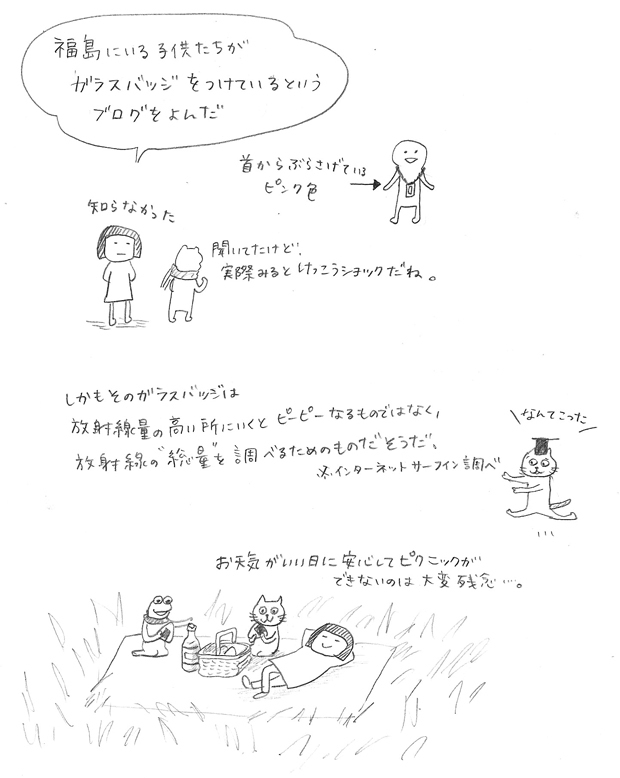 福島にいる子供たちが
ガラスバッジをつけているという
ブログをよんだ
首からぶらさげている
ピンク色
知らなかった
聞いてたけど、
実際みるとけっこうショックだね。
しかもそのガラスバッジは
放射線量の高い所にいくとピーピーなるものではなく、
放射線の"総量"を調べるためのものだそうだ、
※インターネットサーフィン調べ
なんてこった
お天気がいい日に安心してピクニックが
できないのは大変残念…。